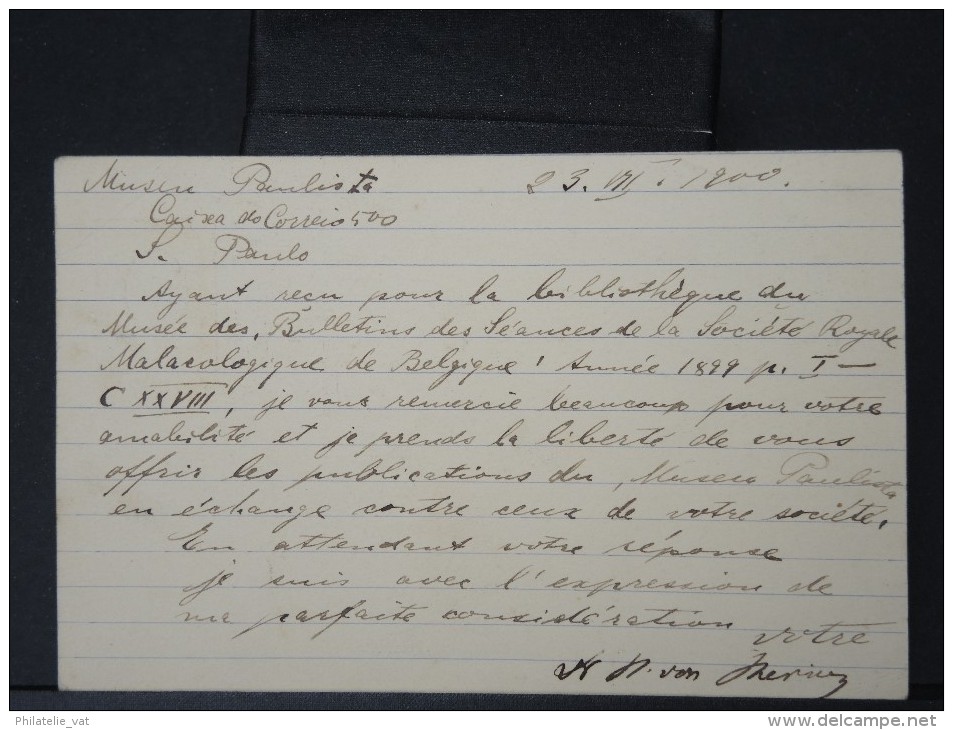 Museu Paulista 23. VII. 1900.
Caixa do Correio 500
S. Paulo
Ayant reçu pour la bibliothèque du
Musée des „Bulletins des Séances de la Société Royale
Malacologique de Belgique" Année 1899 p. I —
CXXVIII, je vous remercie beaucoup pour votre
amabilité et je prends la liberté de vous
offrir les publications du „Museu Paulista
en échange contre ceux de votre société.
En attendant votre réponse
je suis avec l'expression de
ma parfaite considération
votre
H. von Ihering
Philatelie_vat
www.delcampe.net